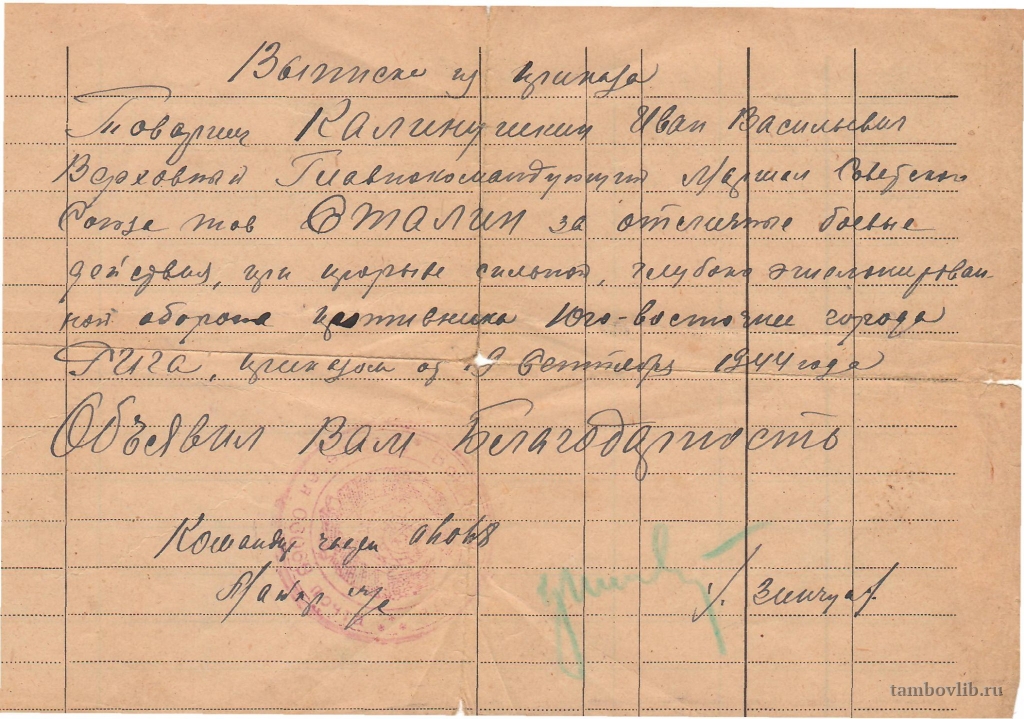 Выписка из приказа
Товарищ Калинушкин Иван Васильевич
Верховный Главнокомандующий Маршал Советского
Союза тов Сталин за отличные боевые
действия, при прорыве сильной, глубоко эшелонирован-
ной обороны противника Юго-восточнее города
Рига, приказом от 19 Сентября 1944 года
Объявил Вам Благодарность
Командир части
Майор
tambovlib.ru